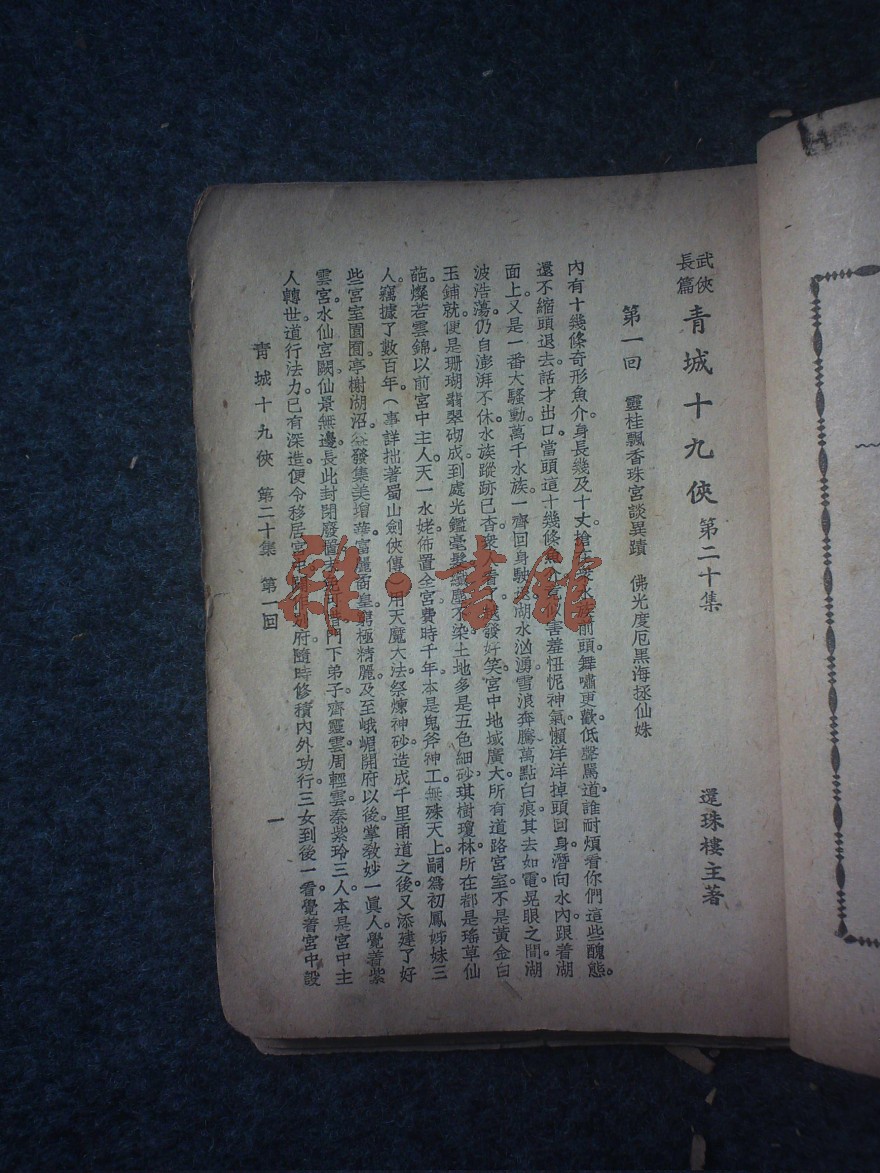 武俠長篇 青城十九俠 第二十集
還珠樓主著
第一回 靈桂飄香珠宮談異蹟 佛光度厄黑海拯仙姝
內有十幾條奇形魚介身長幾及十丈搶在衆水族前頭舞嘯更歡低聲罵道誰耐煩看你們這些醜態。
還不縮頭退去話才出口當頭這十幾條魚介竟似害羞忸怩神氣懶洋洋掉頭回身潛向水內跟着湖
面上又是一番大騷動萬千水族一齊回身駛去湖水洶湧雪浪奔騰萬點白痕其去如電晃眼之間湖
波浩蕩仍自澎湃不休水族蹤跡已杳衆人看了越發好笑宮中地域廣大所有道路宮室不是黃金白
玉鋪就便是珊瑚翡翠砌成到處光鑑毫髮纖塵不染土地多是五色細砂琪樹瓊林所在都是瑤草仙
葩燦若雲錦以前宮中主人天一水姥佈置全宮費時千年本是鬼斧神工無殊天上嗣爲初鳳姊妹三
人竊據了數百年。(事詳拙著蜀山劍俠傳)用天魔大法祭煉神砂造成千里甬道之後又添建了好
些宮室園囿亭榭湖沼益發集美增華富麗矞皇窮極精麗及至峨嵋開府以後掌敎妙一眞人。覺着紫
雲宮水仙宮闕仙景無邊長此封閉廢置未免可惜門下弟子齊靈雲周輕雲秦紫玲三人本是宮中主
人轉世道行法力已有深造便令移居宮中闢作別府隨時修積內外功行三女到後一看覺着宮中設
青城十九俠 第二十集 第一回
一
雜·書館